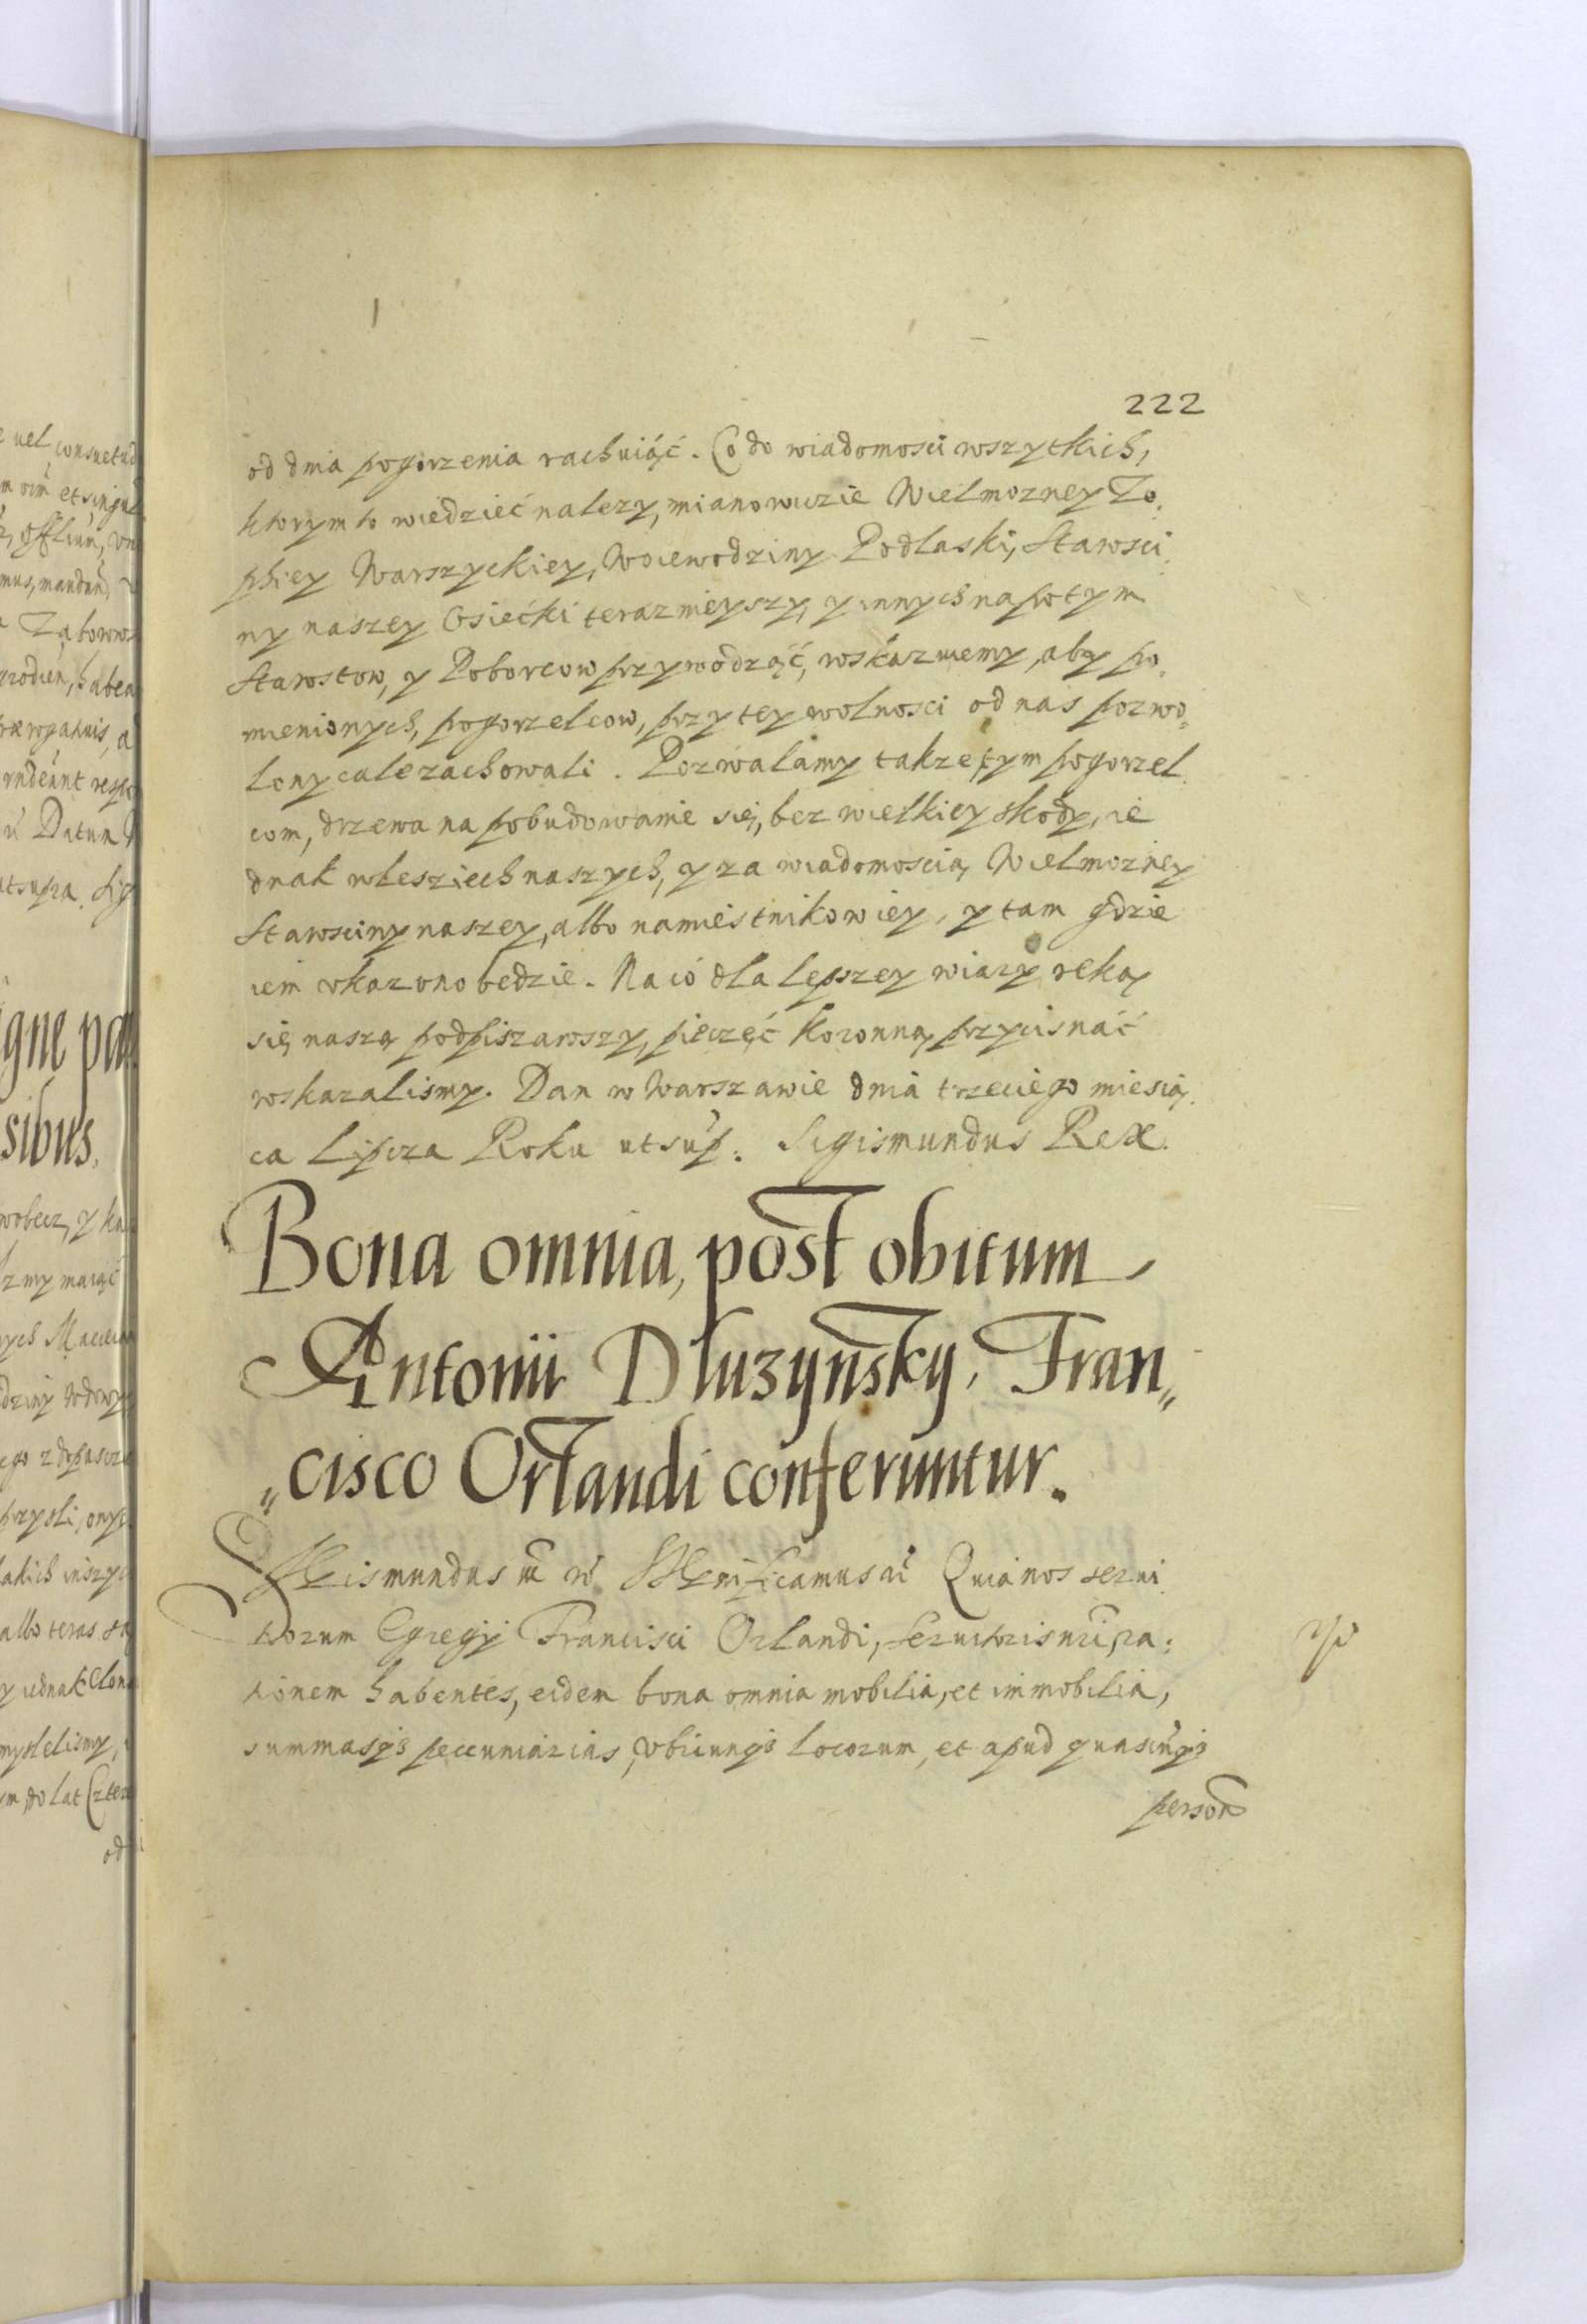 222
od dnia pogorzenia rachuiąć. Co do wiadomosci wszytkich,
ktorym to wiedzieć nalezy, mianowicie Wielmozney Zo,
phiey Warszyckiey, Woiewodziny Podlaski, Starosci,
ny naszey Osiecki terazniejszy, y innych napotym
Starostow, y Poborcow przywodząć, wskazuiemy, aby po,
mienionych, pogorzelcow, przy tey wolnosci od nas pozwo,
lony cale zachowali. Pozwalamy takze tym pogorzel,
com, drzewa na pobudowanie się, bez wielkiey skody, ie
dnak w lesziech naszych, y za wiadomoscią Wielmozney
Starosciny naszey, albo namiestnikow iey, y tam gdzie
iem vkazono bedzie. Na co dla lepszey wiary ręką
się naszą podpiszawszy, pieczęć koronną przycisnać
wskazalismy. Dan w Warszawie dnia trzeciego miesią,
ca Lipcza Roku ut sup: Sigismundus Rex.
Bona omnia, post obitum
Antonii Dluzynsky, Fran„
„cisco Orlandi conferuntur.
Sigismundus Significamus Quia nos serui
torum Egregij Francisci Orlandi, seruitoris nri, ra:
tionem habentes, eidem bona omnia mobilia, et immobilia,
summasqз peccuniarias, vbicunqз locorum, et apud quascunqз
person
e uel consuetud
et singul
mus, mandam
Datum
gne pa
sibus.
wobecz, y ka
albo teras
y iednak
myslelismy,
m do lat Czter
od